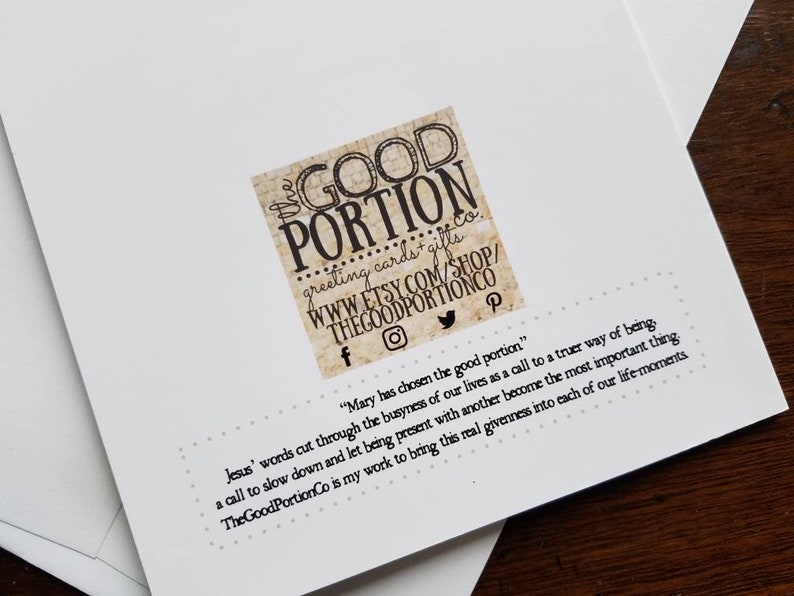 the GOOD
PORTION
co.
greeting cards + gifts
WWW.ETSY.COM/SHOP/
THEGOODPORTIONCO
“Mary has chosen the good portion”
Jesus’ words cut through the busyness of our lives as a call to a truer way of being,
a call to slow down and let being present with another become the most important thing.
TheGoodPortionCo is my work to bring this real givenness into each of our life-moments.